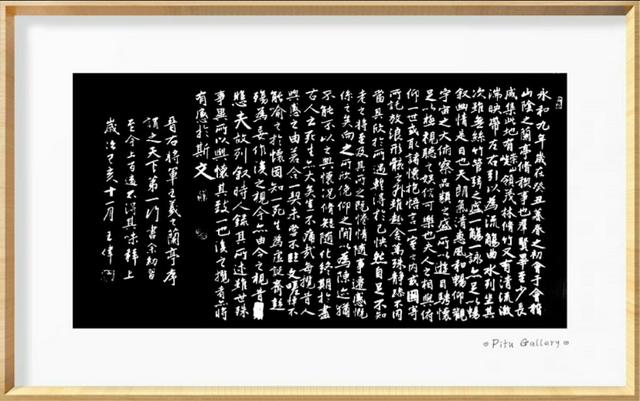 永和九年歲在癸丑暮春之初會于會稽
山陰之蘭亭脩稧事也羣賢畢至少長
咸集此地有崇山峻領茂林脩竹又有清流激
湍暎帶左右引以為流觴曲水列坐其
次雖無絲竹管弦之盛一觴一詠亦足以暢
叙幽情是日也天朗氣清惠風和暢仰觀
宇宙之大俯察品類之盛所以遊目騁懷
足以極視聽之娛信可樂也夫人之相與俯
仰一世或取諸懷抱悟言一室之內或因寄
所託放浪形骸之外雖趣舍萬殊靜躁不同
當其欣於所遇暫得於己快然自足不知
老之將至及其所之既惓情隨事遷感慨
係之矣向之所欣俛仰之間以為陳迹猶
不能不以之興懷況脩短隨化終期於盡
古人云死生亦大矣豈不痛哉每攬昔人
興感之由若合一契未嘗不臨文嗟悼不
能喻之於懷固知一死生為虛誕齊彭
殤為妄作後之視今亦由今之視昔
悲夫故列叙時人錄其所述雖世殊
事異所以興懷其致一也後之攬者亦將
有感於斯文
晉右將軍王羲之蘭亭序
謂之天下第一行書余初習
至今上百遍不得其味稱上
歲次己亥十一月王偉
Pitu Gallery